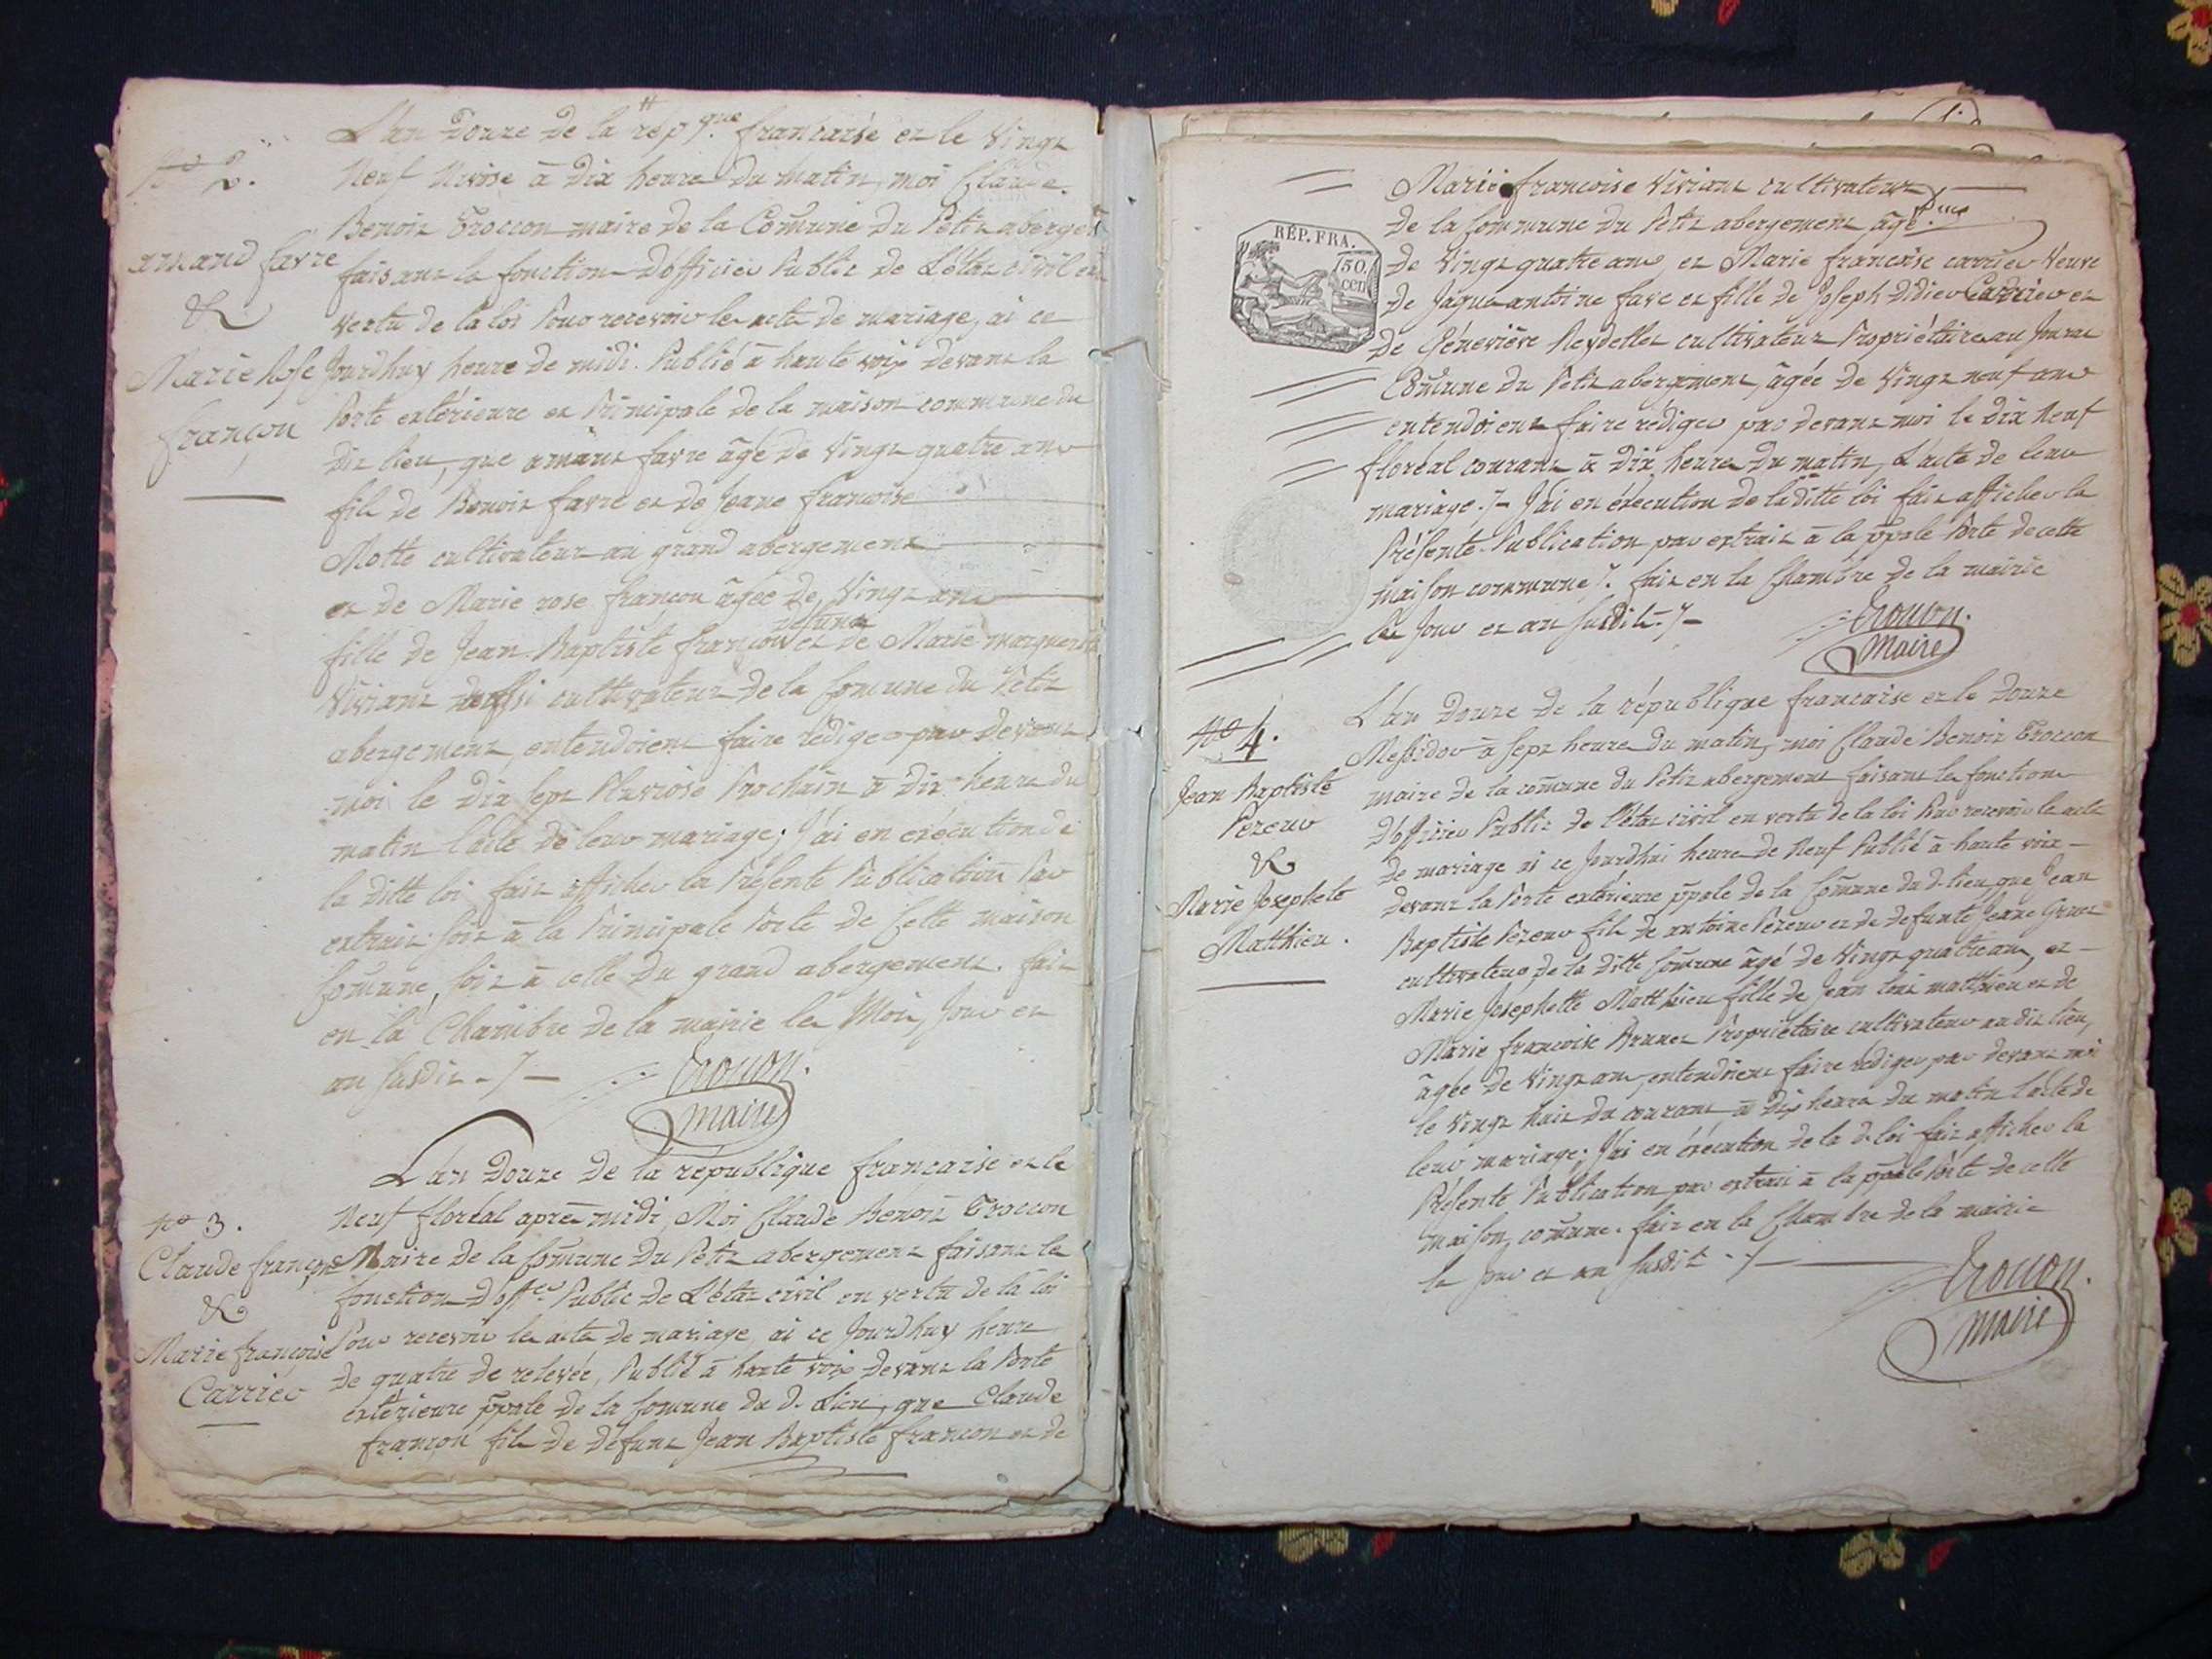 L'an Douze de la rép.que francaise et le vingt
N° 2.
Neuf Nivose à Dix heures Du matin, moi Claude
Benoit Troccon maire de la Comune Du Petit aberget
amand favre
faisant les fonctions D'officier Public de L'état civil en
&
vertu de la loi Pour recevoir les actes de mariage, ai ce
Marie Rose
Jourdhuy heure de midi. Publié à haute voix devant la
françon
Porte extérieure et Principale de la maison commune du
Dit lieu, que amant favre âgé de vingt quatre ans
fils de Benoit favre et de Jeane francoise
Motte cultivateurs au grand abergement
et de Marie rose françon âgée de vingt ans
defunt
fille de Jean Baptiste françon et de Marie marguerite
Viviant aussi cultivateurs de la Comune du Petit
abergement, entendoient faire rédiger par devant
moi le dix sept Pluviose Prochain à Dix heures du
matin l'acte de leur mariage; J'ai en exécution de
la ditte loi fait afficher la Présente Publication Par
extrait soit à la Principale Porte de Cette maison
Comune, soit à celle du grand abergement. fait
en la Chambre de la mairie les Mois, Jour et
an susdit -/-
Troccon.
maire
L'an Douze de la république francaise et le
N° 3.
Neuf floréal après midi, Moi Claude Benoit Troccon
Claude françon
Maire de la Comune Du Petit abergement faisant les
&
fonctions D'off.er Public de L'état civil en vertu de la loi
Marie françoise
Pour recevoir les actes de mariage, ai ce Jourdhuy heure
Carrier
de quatre de relevée, Publié à haute voix devant la Porte
extérieure ppale de la Comune du d. Lieu, que Claude
françon fils de défunt Jean Baptiste françon et de
Marie francoise Viviant cultivateurs
de la Commune du Petit abergement âgé
RÉP. FRA.
50 cen
de vingt quatre ans, et Marie francoise carrier veuve
de Jaque antoine favre et fille de Joseph Didier Carrier et
de Géneviève Reydellet cultivateurs Propriétaires au
Comune du Petit abergement, âgée de vingt neuf ans
entendoient faire rédiger par devant moi le dix Neuf
floréal courant à dix heures du matin, L'acte de leur
mariage. /- J'ai en éxecution de laditte loi fait afficher la
Présente Publication par extrait à la ppale Porte de cette
maison commune /. fait en la Chambre de la mairie
les Jour et an susdits -/-
Troccon.
Maire
L'an Douze de la république francaise et le Douze
N° 4.
Messidor à sept heures du matin, moi Claude Benoit Troccon
Jean Baptiste
maire de la comune du Petit abergement faisant les fonctions
Pezeur
D'officier Public de l'état civil en vertu de la loi Pour recevoir les actes
&
de mariage ai ce Jourdhui heure de Neuf Publié à haute voix -
Marie Josephete
devant la Porte extérieure ppale de la Comune du d. lieu, que Jean
Matthieu.
Baptiste Pezeur fils de antoine Pezeur et de défunte Jeane
cultivateurs de la ditte Comune âgé de vingt quatre ans, et -
Marie Josephette Matthieu fille de Jean matthieu et de
Marie francoise Brunet Propriétaire cultivateurs au dit lieu,
âgée de vingt ans, entendoient faire rédiger par devant moi
le vingt huit du courant à dix heures du matin l'acte de
leur mariage; J'ai en éxecution de la d. loi fait afficher la
Présente Publication par extrait à la ppale Porte de cette
maison, comune. fait en la Chambre de la mairie
les Jour et an susdit -/-
Troccon.
maire